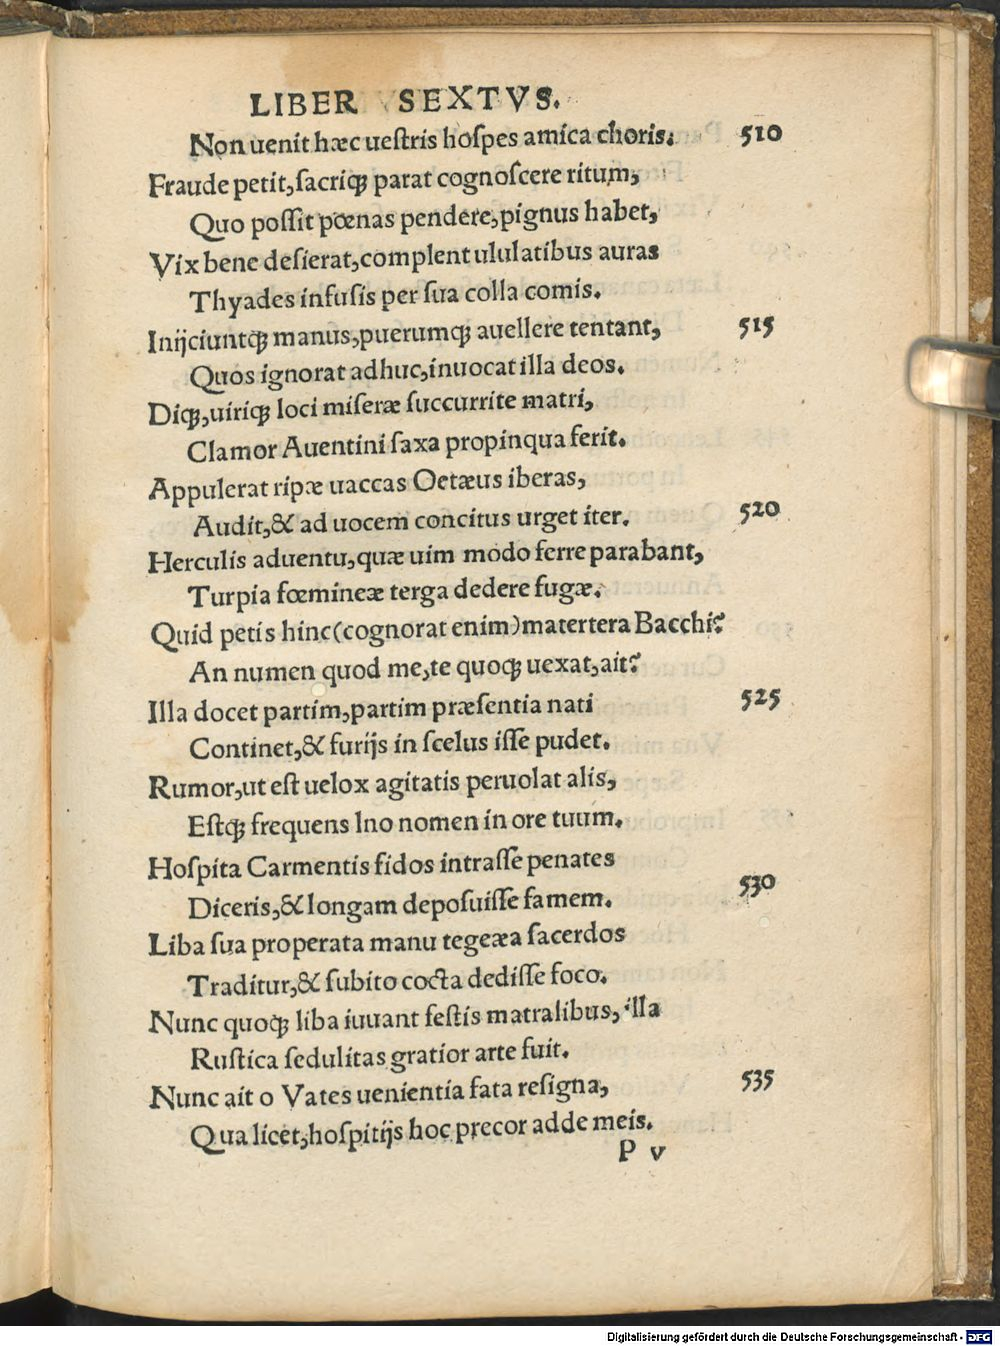 LIBER SEXTVS.
Non uenit hæc uestris hospes amica choris. 510
Fraude petit, sacriq; parat cognoscere ritum,
Quo possit pœnas pendere, pignus habet,
Vix bene desierat, complent ululatibus auras
Thyades infusis per sua colla comis.
Inijciuntq; manus, puerumq; auellere tentant, 515
Quos ignorat adhuc, inuocat illa deos.
Diq;, uiriq; loci miseræ succurrite matri,
Clamor Auentini saxa propinqua ferit.
Appulerat ripæ uaccas Oetæus iberas,
Audit, & ad uocem concitus urget iter. 520
Herculis aduentu, quæ uim modo ferre parabant,
Turpia fœmineæ terga dedere fugæ.
Quid petis hinc (cognorat enim) matertera Bacchi?
An numen quod me, te quoq; uexat, ait?
Illa docet partim, partim præsentia nati 525
Continet, & furijs in scelus isse pudet.
Rumor, ut est uelox agitatis peruolat alis,
Estq; frequens Ino nomen in ore tuum.
Hospita Carmentis fidos intrasse penates
Diceris, & longam deposuisse famem. 530
Liba sua properata manu tegeæa sacerdos
Traditur, & subito cocta dedisse foco.
Nunc quoq; liba iuuant festis matralibus, illa
Rustica sedulitas gratior arte fuit.
Nunc ait o Vates uenientia fata resigna, 535
Qua licet, hospitijs hoc precor adde meis.
P v
Digitalisierung gefördert durch die Deutsche Forschungsgemeinschaft - DFG